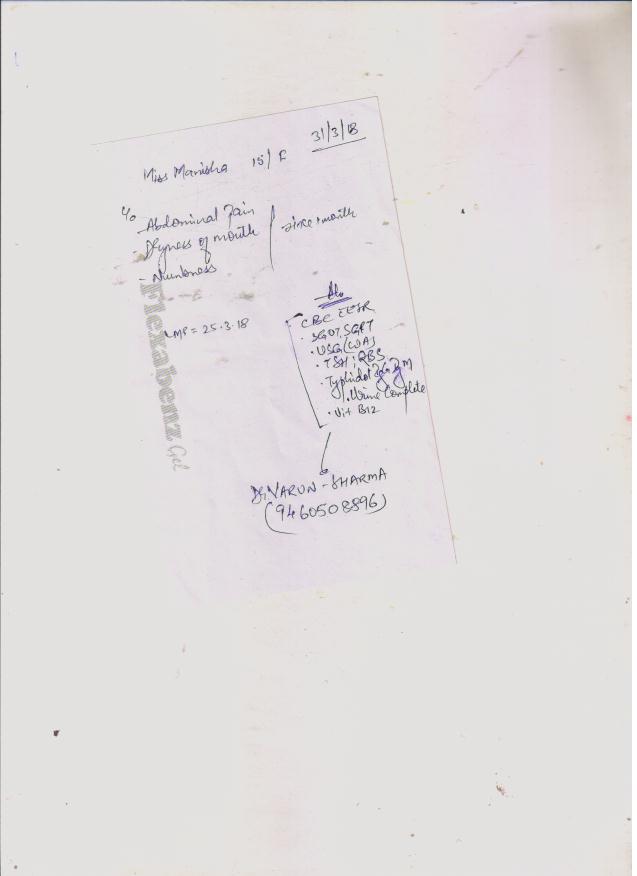 31/3/18
Miss Manisha 15/ F
c/o
- Abdominal Pain
- Dryness of mouth
since 1 month
- Numbness
LMP = 25.3.18
Adv.
CBC ESR
. SGOT, SGPT
. USG (W/A)
. TSH ; RBS
. Typhidot IgG IgM
. Urine Complete
. Vit B12
Dr. VARUN - SHARMA
(9460508896)
Flexabenz Gel